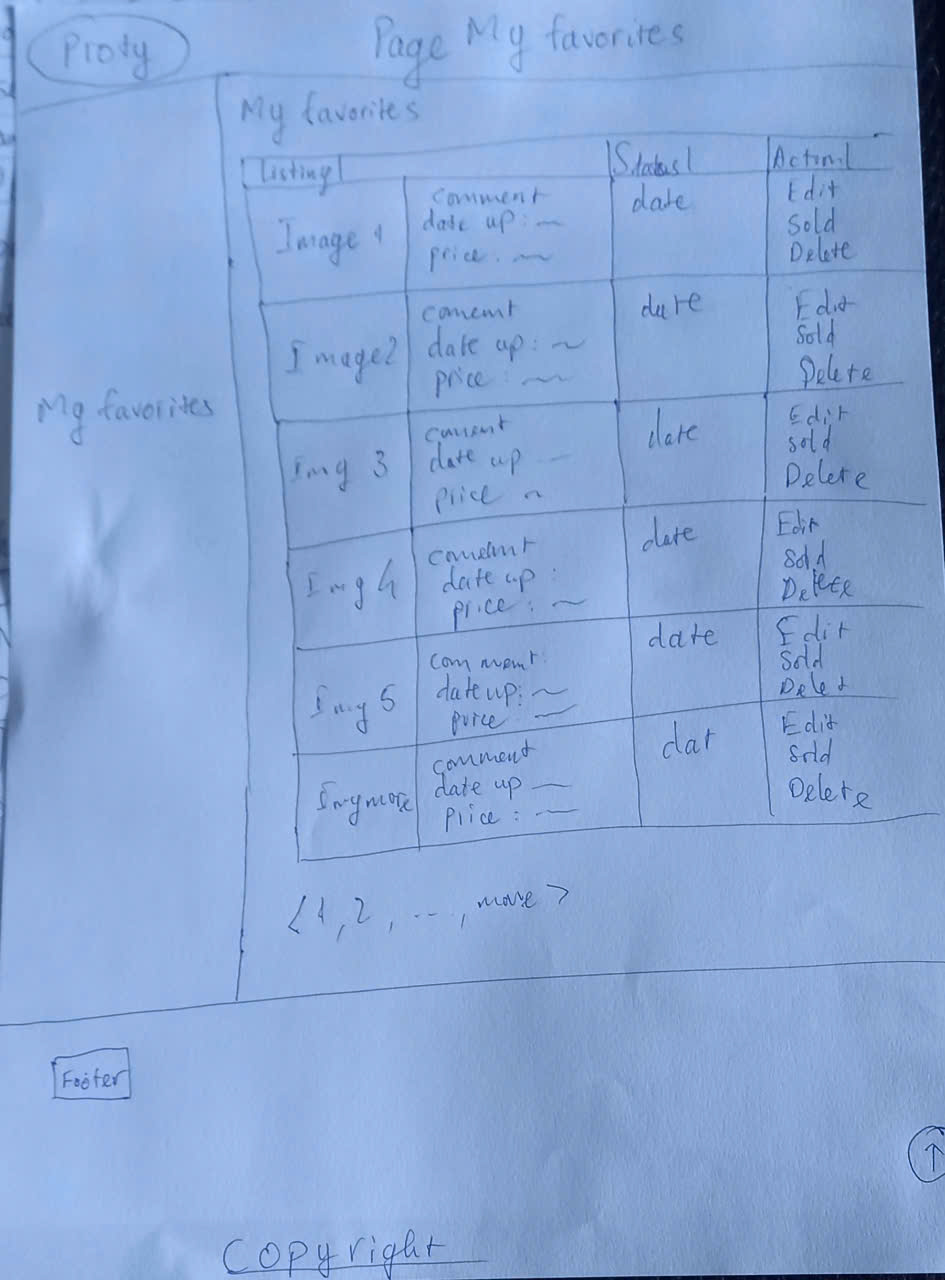 Prody
Page My favorites
My favorites
Listing
Status
Action
Image 1
comment
date up : ~
price : ~
date
Edit
Sold
Delete
Image2
coment
date up : ~
price : ~
date
Edit
Sold
Delete
My favorites
Img 3
coment
date up —
price ~
date
Edit
Sold
Delete
Img 4
comemnt
date up :
price : ~
date
Edit
Sold
Delete
Img 5
comment:
date up: ~
price : ~
date
Edit
Sold
Delet
Imgmore
comment
date up —
price : —
dat
Edit
Sold
Delete
< 1, 2, ..., more >
Footer
↑
Copyright